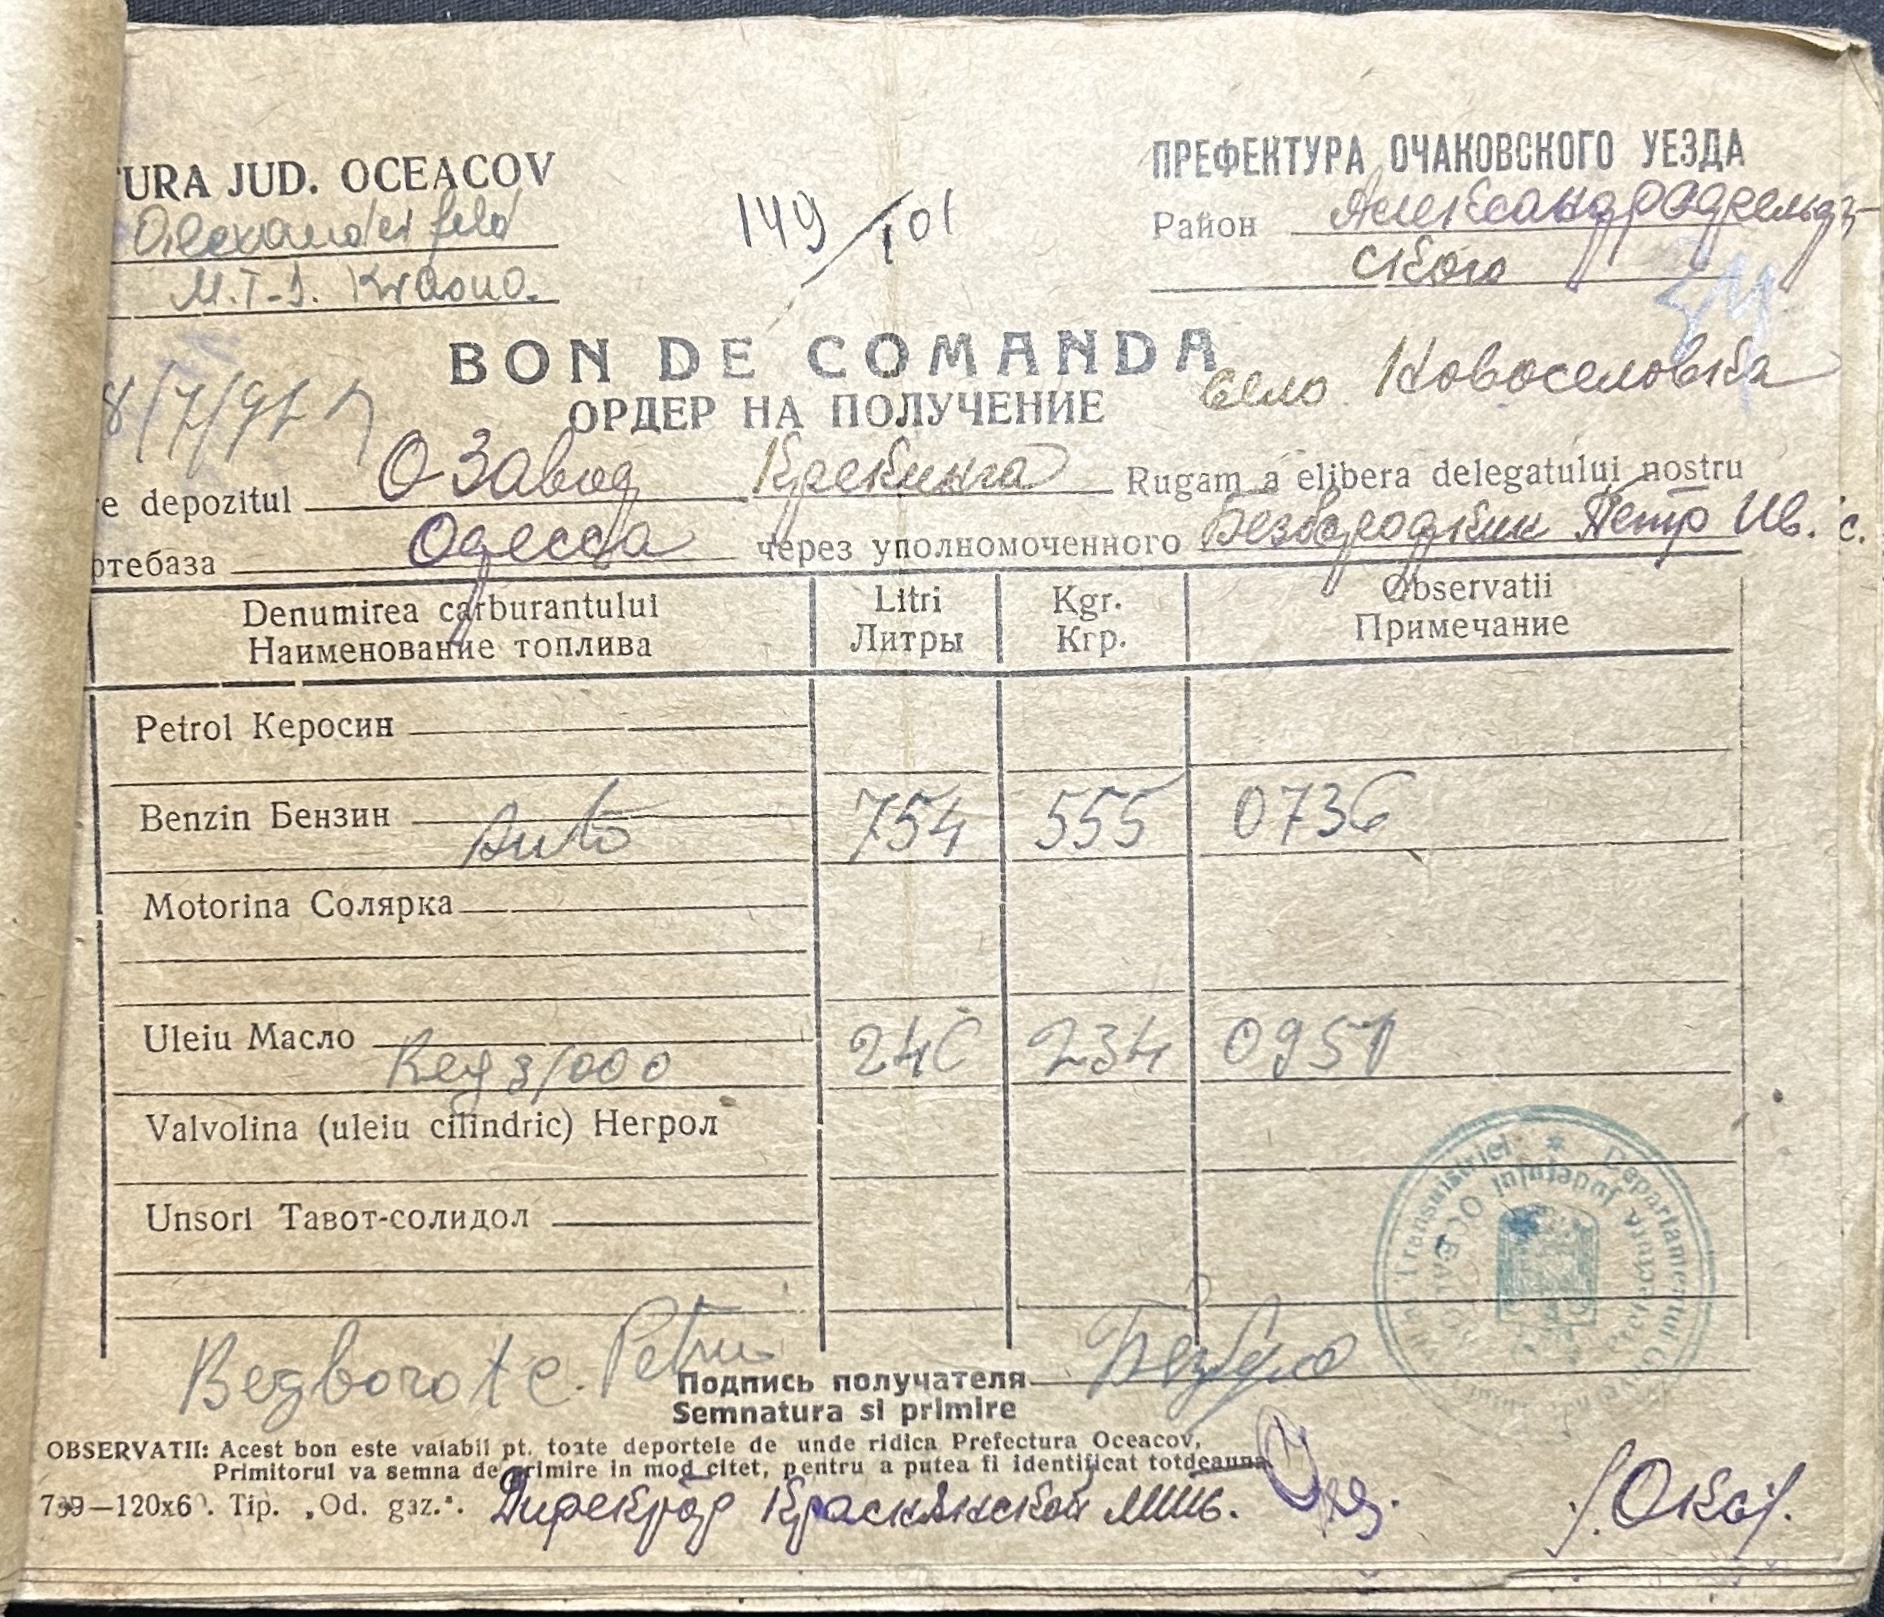 TURA JUD. OCEACOV
Alexanderfeld
M.T-S. Krasno.
149/101
ПРЕФЕКТУРА ОЧАКОВСКОГО УЕЗДА
Район Александрафельдз-
ского
BON DE COMANDA
ОРДЕР НА ПОЛУЧЕНИЕ
село Новоселовка
8/7/942
e depozitul О Завод Крекинга Rugam a elibera delegatului nostru
фтебаза Одесса через уполномоченного Безбородкин Петр Ив. с.
Denumirea carburantului Litri Kgr. Observatii
Наименование топлива Литры Кгр. Примечание
Petrol Керосин
Benzin Бензин Auto 754 555 0736
Motorina Солярка
Uleiu Масло 240 234 0951
Valvolina (uleiu cilindric) Негрол
Unsori Тавот-солидол
Departamentul Transnistriei
Prefectura Judetului OCEACOV
Petru
Подпись получателя
Semnatura si primire
OBSERVATII: Acest bon este valabil pt. toate deportele de unde ridica Prefectura Oceacov,
Primitorul va semna de primire in mod citet, pentru a putea fi identificat totdeauna
739—120x60. Tip. „Od. gaz.“. Директор Краснянской МТС.